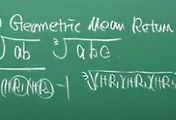 Geometric Mean Return
√ab ³√abc
√(1+R₁)(1+R₂) - 1 ³√(1+R₁)(1+R₂)(1+R₃)